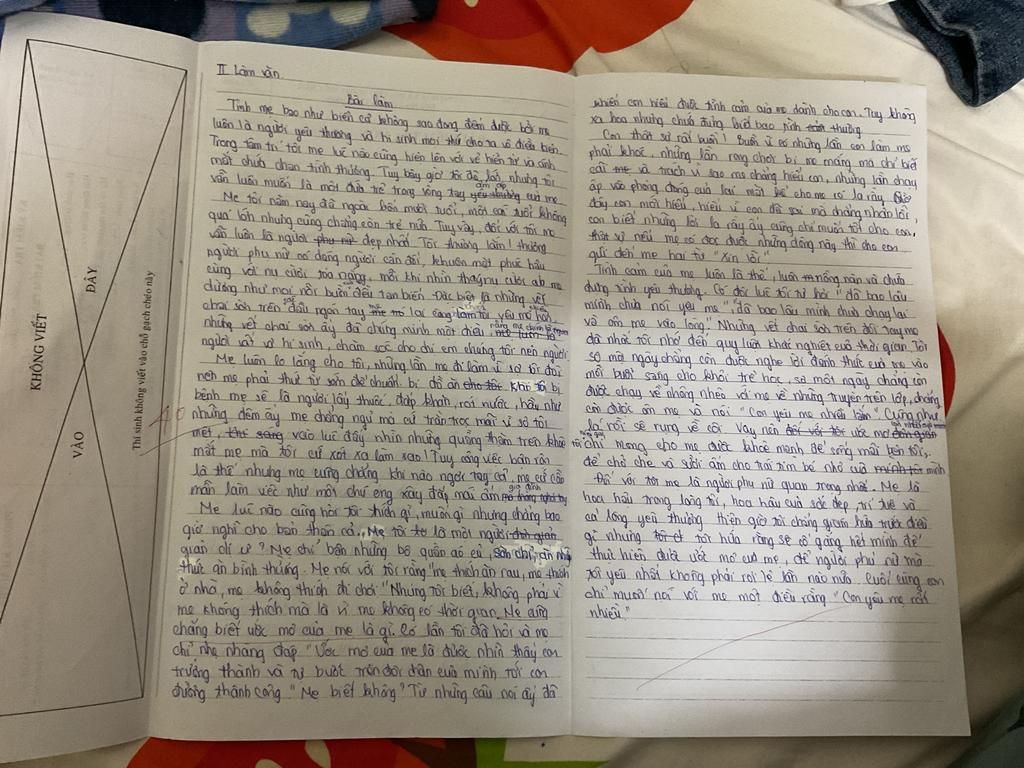 KHÔNG VIẾT
VÀO
ĐÂY
Thí sinh không viết vào chỗ gạch chéo này
4.0
II. Làm văn
Bài làm
Tình mẹ bao như biển cả không sao đong đếm được bởi mẹ
luôn là người yêu thương và hi sinh mọi thứ cho ta vô điều kiện.
Trong tâm trí tôi mẹ lúc nào cũng hiện lên với vẻ hiền từ và ánh
mắt chứa chan tình thương. Tuy bây giờ tôi đã lớn, nhưng tôi
vẫn luôn muốn là một đứa trẻ trong vòng tay ấm áp của mẹ
Mẹ tôi năm nay đã ngoài bốn mươi tuổi, một cái tuổi không
quá lớn nhưng cũng chẳng còn trẻ nữa. Tuy vậy, đối với tôi mẹ
vẫn luôn là người đẹp nhất. Tôi thương lắm! thương
người phụ nữ có dáng người cân đối, khuôn mặt phúc hậu
cùng với nụ cười tỏa nắng, mỗi khi nhìn thấy nụ cười ấy
dường như mọi nỗi buồn đều tan biến. Đặc biệt là những vết
chai sờn trên đầu ngón tay lại làm tôi yêu mẹ hơn
những vết chai sờn ấy đã chứng minh một điều, rằng mẹ chính là người
người vất vả hi sinh, chăm sóc cho chị em chúng tôi nên người
Mẹ luôn lo lắng cho tôi, những lần mẹ đi làm vì sợ tôi đói
nên mẹ phải thức từ sớm để chuẩn bị đồ ăn khi tôi bị
bệnh mẹ sẽ là người lấy thuốc, đắp khăn, rót nước, hầu như
những đêm ấy mẹ chẳng ngủ mà cứ trằn trọc mãi vì sợ tôi
mệt, vào lúc đấy nhìn những quầng thâm trên khóe
mắt mẹ mà tôi cứ xót xa làm sao! Tuy công việc bận rộn
là thế nhưng mẹ cũng chẳng khi nào ngơi tay cả, mẹ cứ cần
mẫn làm việc như một chú ong xây đắp mái ấm gia đình
Mẹ lúc nào cũng hỏi tôi thích gì, muốn gì nhưng chẳng bao
giờ nghĩ cho bản thân cả. Mẹ tôi là một người
giản dị ư? Mẹ chỉ bận những bộ quần áo cũ, son chì, ăn những
thức ăn bình thường. Mẹ nói với tôi rằng "mẹ thích ăn rau, mẹ thích
ở nhà, mẹ không thích đi chơi" Nhưng tôi biết, không phải vì
mẹ không thích mà là vì mẹ không có thời gian. Mẹ cũng
chẳng biết ước mơ của mẹ là gì. Có lần tôi đã hỏi và mẹ
chỉ nhẹ nhàng đáp "Ước mơ của mẹ là được nhìn thấy con
trưởng thành và tự bước trên đôi chân của mình tới con
đường thành công." Mẹ biết không? Từ những câu nói ấy đã
khiến con hiểu được tình cảm của mẹ dành cho con. Tuy không
xa hoa nhưng chứa đựng biết bao tình thương
Con thật sự rất buồn! Buồn vì có những lần con làm mẹ
phải khóc, những lần rong chơi bị mẹ mắng mà chỉ biết
cãi và trách vì sao mẹ chẳng hiểu con, những lần chạy
ấp vào phòng đóng cửa lại mặt kệ cho mẹ có la rầy. Giờ
đây con mới hiểu, hiểu vì con đã sai mà chẳng nhận lỗi,
con biết những lời la rầy ấy cũng chỉ muốn tốt cho con,
thật sự nếu mẹ có đọc được những dòng này thì cho con
gửi đến mẹ hai từ "Xin lỗi"
Tình cảm của mẹ luôn là thế, luôn nồng nàn và chứa
đựng tình yêu thương. Có đôi lúc tôi tự hỏi "đã bao lâu
mình chưa nói yêu mẹ", "đã bao lâu mình chưa chạy lại
và ôm mẹ vào lòng". Những vết chai sờn trên đôi tay mẹ
đã nhắc tôi nhớ đến quy luật khắc nghiệt của thời gian. Tôi
sợ một ngày chẳng còn được nghe lời đánh thức của mẹ vào
mỗi buổi sáng cho khỏi trễ học, sợ một ngày chẳng còn
được chạy về nhõng nhẽo với mẹ về những truyện trên lớp, chẳng
còn được ôm mẹ và nói "Con yêu mẹ nhiều lắm" Cũng như
lá rồi sẽ rụng về cội. Vậy nên ước mơ
tôi chỉ mong cho mẹ được khỏe mạnh để sống mãi bên tôi,
để chở che và sưởi ấm cho trái tim bé nhỏ của mình
Đối với tôi mẹ là người phụ nữ quan trọng nhất. Mẹ là
hoa hậu trong lòng tôi, hoa hậu của sắc đẹp, trí tuệ và
cả lòng yêu thương thiện giờ tôi chẳng dám hứa trước điều
gì nhưng tôi hứa rằng sẽ cố gắng hết mình để
thực hiện được ước mơ của mẹ, để người phụ nữ mà
tôi yêu nhất không phải rơi lệ lần nào nữa. Cuối cùng con
chỉ muốn nói với mẹ một điều rằng "Con yêu mẹ rất
nhiều"